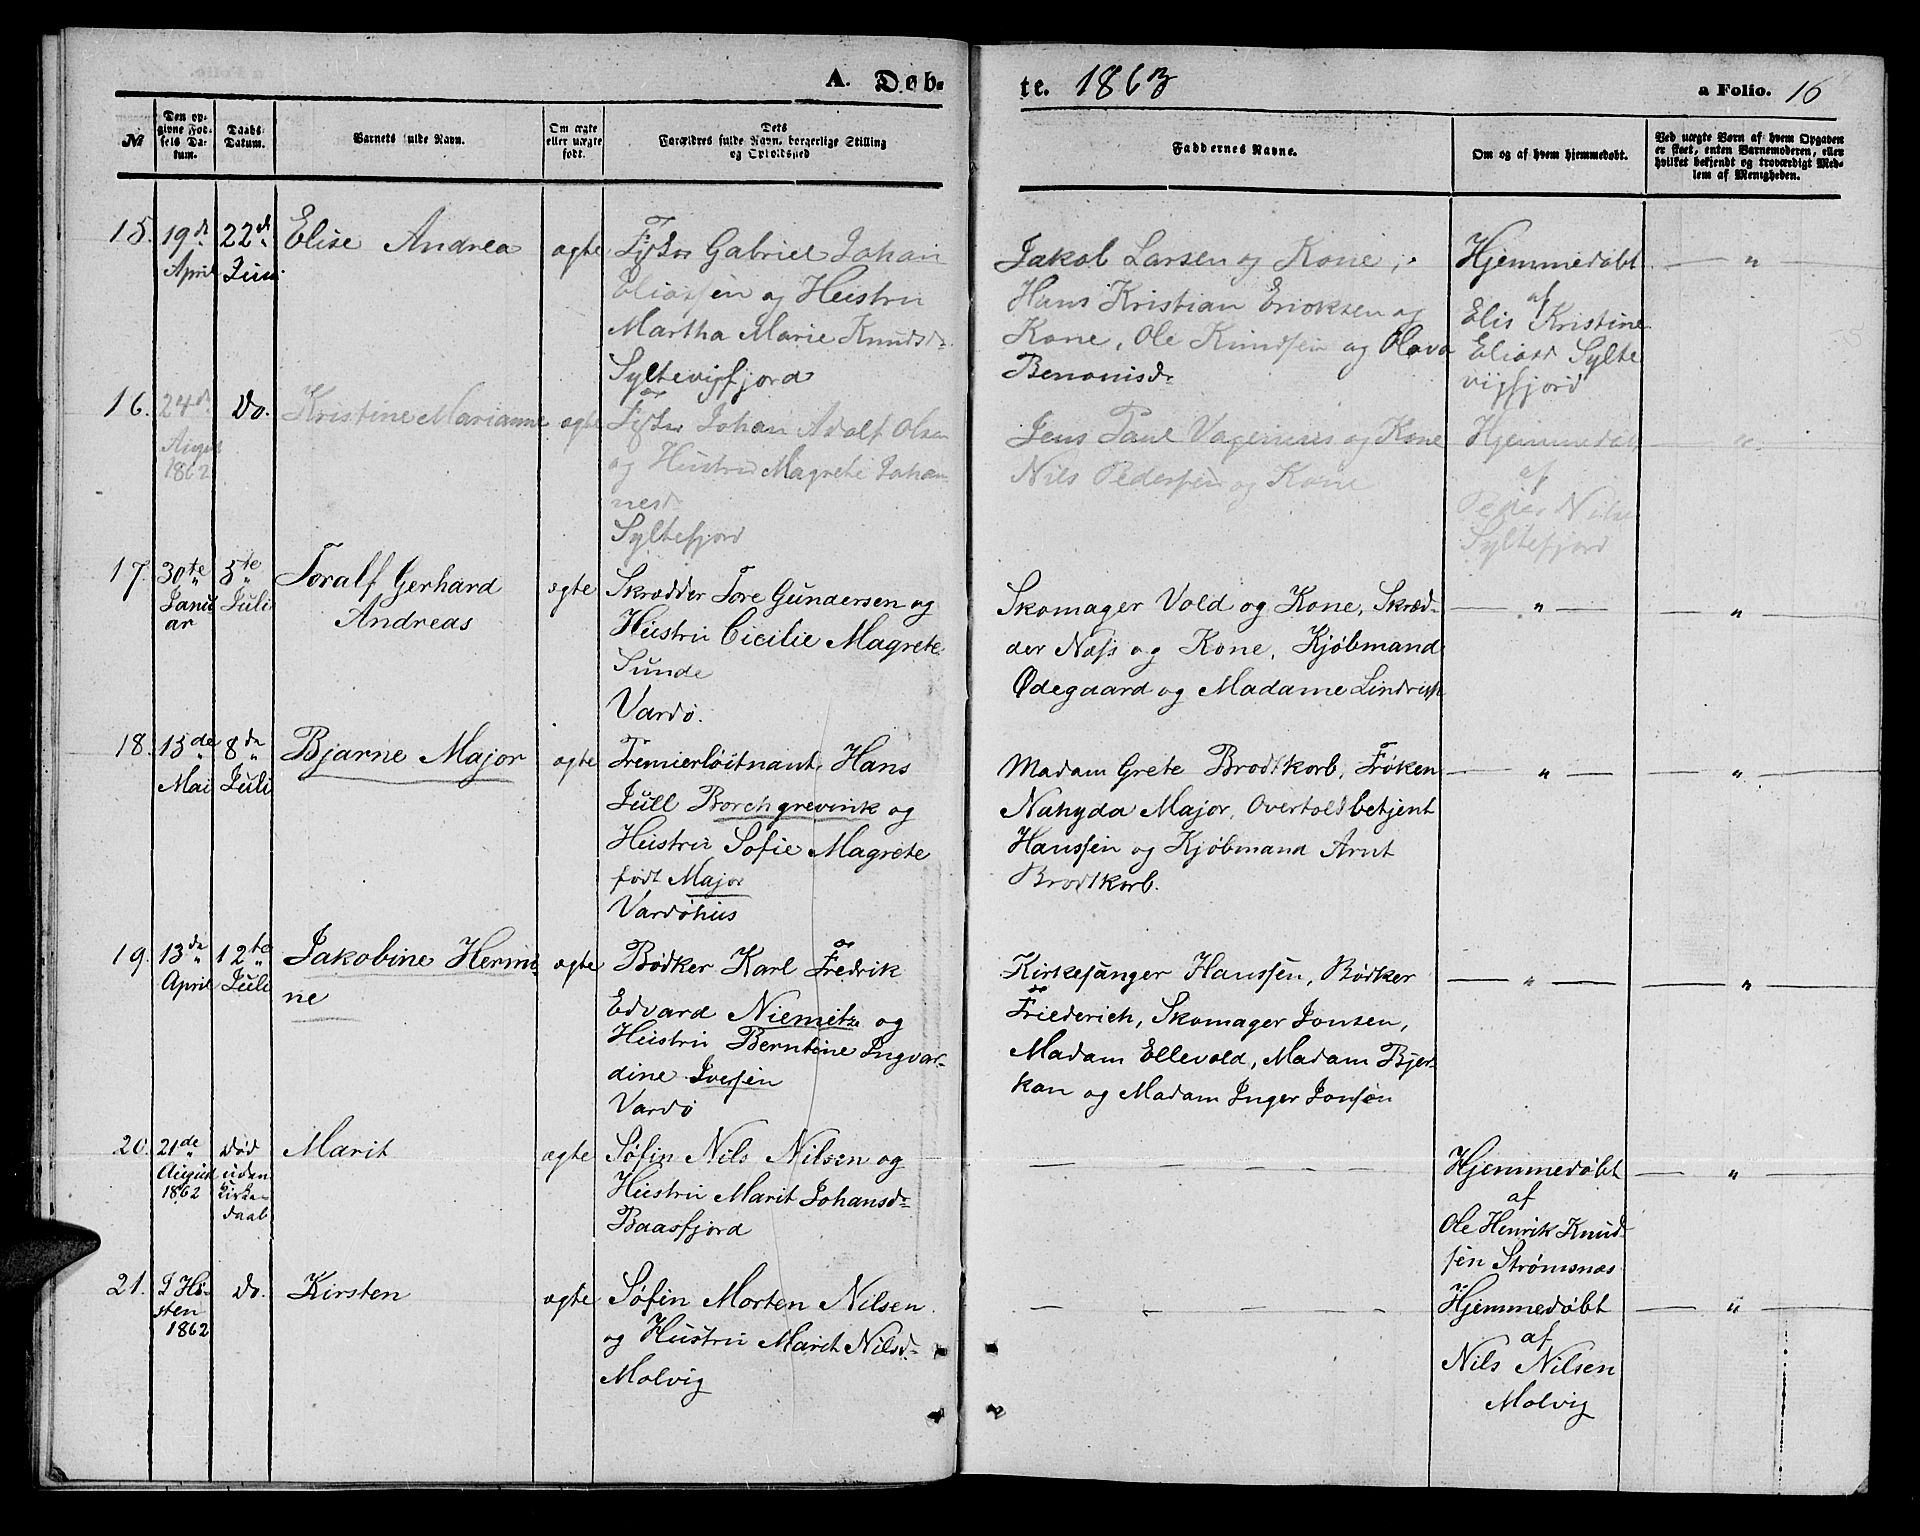 A. Døb-
te. 1863
a Folio. 16
№
Den op-
givne Fød-
sels Da-
tum.
Daabs
Datum.
Barnets fulde Navn.
Om ægte
eller uægte
født.
Dets
Forældres fulde Navn, borgerlige Stilling
og Opholdssted
Faddernes Navne.
Om og af hvem hjemmedøbt.
Ved uægte Børn af hvem Opgaven
er skeet, enten Barnemoderen, eller
hvilket bekjendt og troværdigt Med-
lem af Menigheden.
15. 19de April
22de Juni
Elise Andrea
ægte
Fisker Gabriel Johan
Eliassen og Hustru
Martha Marie Knudsdr
Syltevigfjord
Jakob Larsen og Kone,
Hans Kristian Eriksen og
Kone, Ole Knudsen og Olava
Benonisdr
Hjemmedøbt
af
Elis Kristine
Eliasd Sylte
vigfjord
— " —
16. 24de August 1862
Do.
Kristine Marianne
ægte
Fisker Johan Adolf Olsen
og Hustru Magrete Johan
nesd
Syltefjord
Jens Paul Vagenius og Kone
Nils Pedersen og Kone
Hjemmedøbt
af
Peder Nilsen
Syltefjord
— " —
17. 30te Janu
ar
5te Juli
Toralf Gerhard
Andreas
ægte
Skrædder Tore Gundersen og
Hustru Cicilie Magrete
Sunde
Vardø.
Skomager Vold og Kone, Skræd-
der Næss og Kone, Kjøbmand
Ødegaard og Madame
— " —
— " —
18. 15de Mai
8de Juli
Bjarne Major
ægte
Premierløitnant Hans
Jull Borchgrevink og
Hustru Sofie Magrete
født Major
Vardøhus
Madam Grete Brodtkorb, Frøken
Nahyda Major, Overtoldbetjent
Hanssen og Kjøbmand Arnt
Brodtkorb.
— " —
— " —
19. 13de April
12te Juli
Jakobine Hermi
ne
ægte
Bødker Karl Fredrik
Edvard Niemitz og
Hustru Berntine Ingvar-
dine Iversen
Vardø
Kirkesanger Hanssen, Bødker
Friederich, Skomager Jonsen,
Madam Ellevold, Madam Bjer-
kan og Madam Inger Jonsen
— " —
— " —
20. 21de August 1862
Død
uden
Kirke-
daab
Marit
ægte
Søfin Nils Nilsen og
Hustru Marit Johansdr
Baasfjord
— — — — —
Hjemmedøbt
af
Ole Henrik Knud-
sen Strømsnæs
— " —
21. I Hø-
sten
1862
Do.
Kirsten
ægte
Søfin Morten Nilsen
og Hustru Marit Nilsd
Molvig
— — — — —
Hjemmedøbt
af
Nils Nilsen
Molvig
— " —